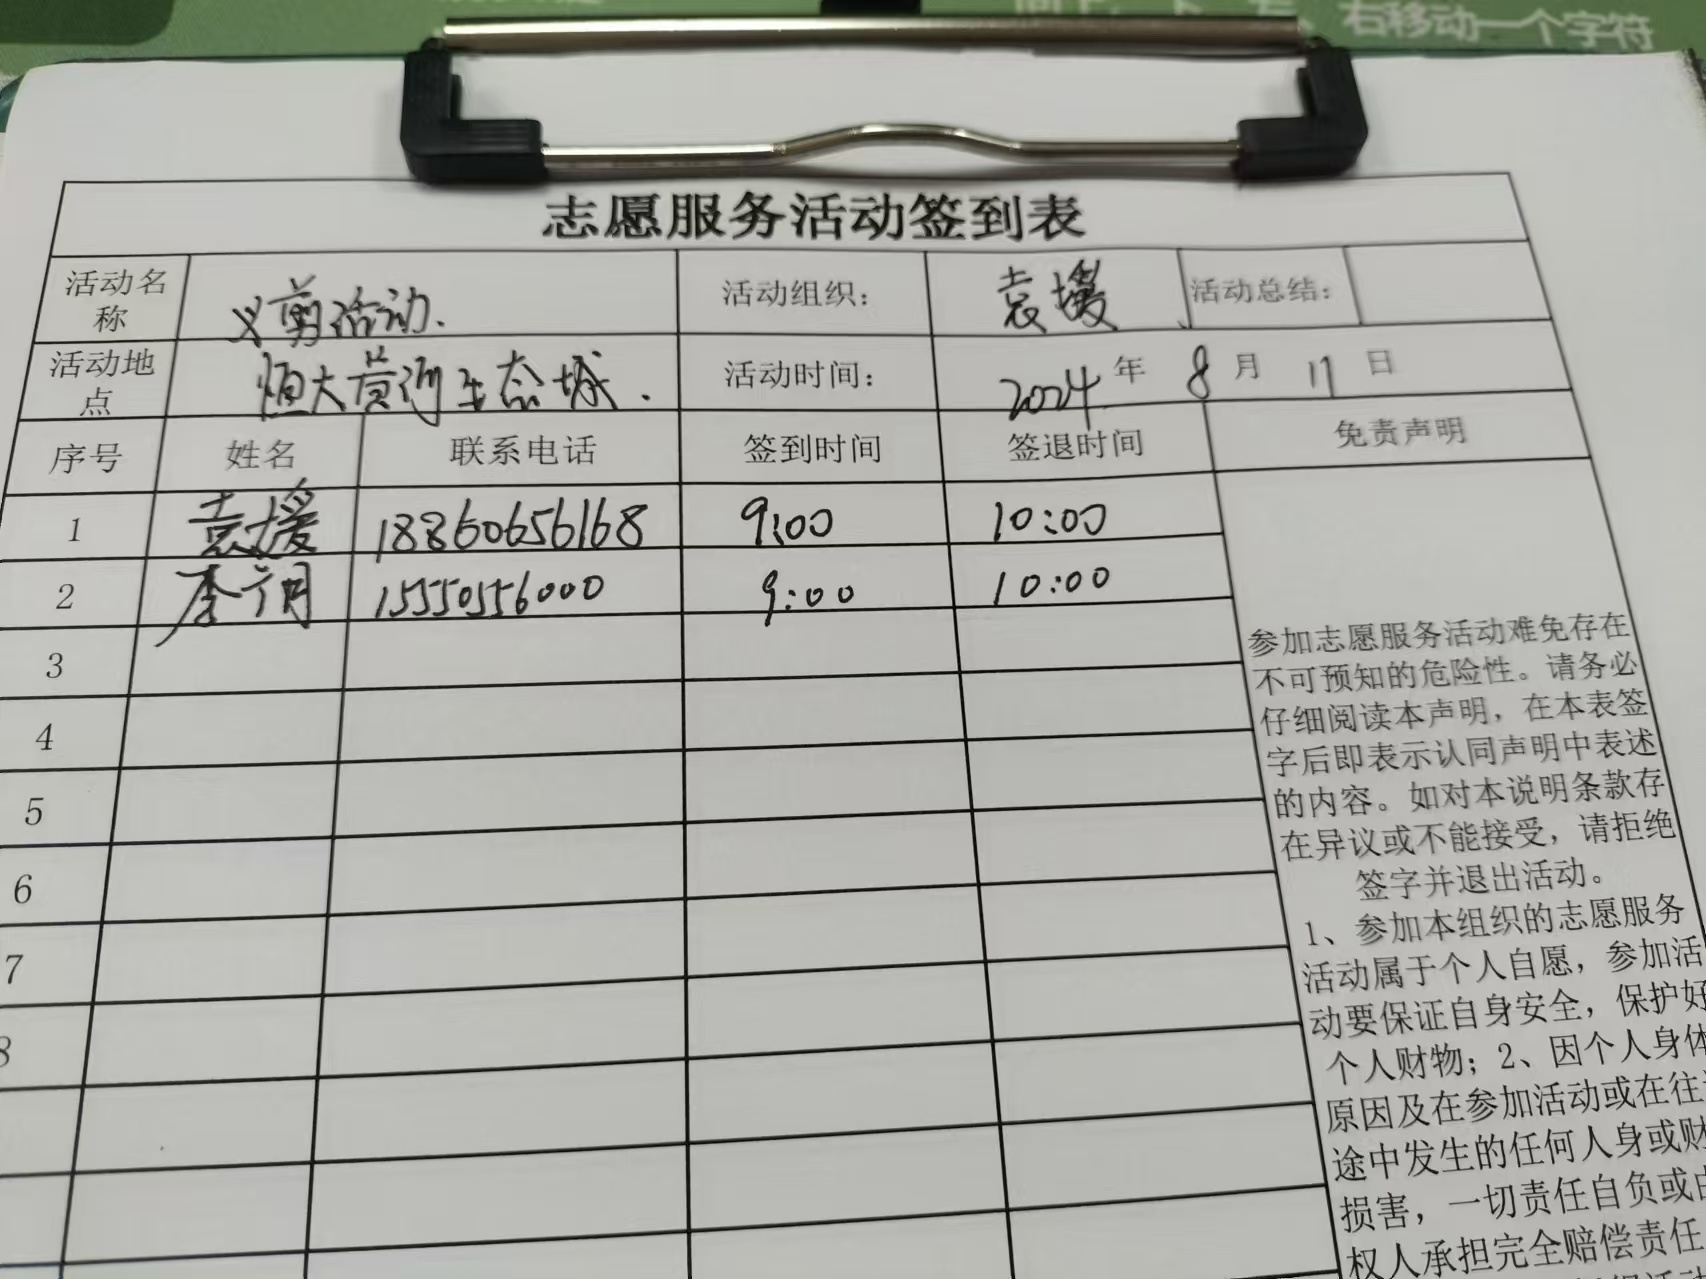 右移动一个字符
志愿服务活动签到表
活动名称 义剪活动. 活动组织: 袁援 活动总结:
活动地点 恒大黄河生态城. 活动时间: 2024 年 8 月 17 日
序号 姓名 联系电话 签到时间 签退时间 免责声明
1 袁援 18860656168 9:00 10:00
2 李 15550556000 9:00 10:00
3
4
5
6
7
8
参加志愿服务活动难免存在
不可预知的危险性。请务必
仔细阅读本声明，在本表签
字后即表示认同声明中表述
的内容。如对本说明条款存
在异议或不能接受，请拒绝
签字并退出活动。
1、参加本组织的志愿服务
活动属于个人自愿，参加活
动要保证自身安全，保护好
个人财物；2、因个人身体
原因及在参加活动或在往
途中发生的任何人身或财
损害，一切责任自负或由
权人承担完全赔偿责任